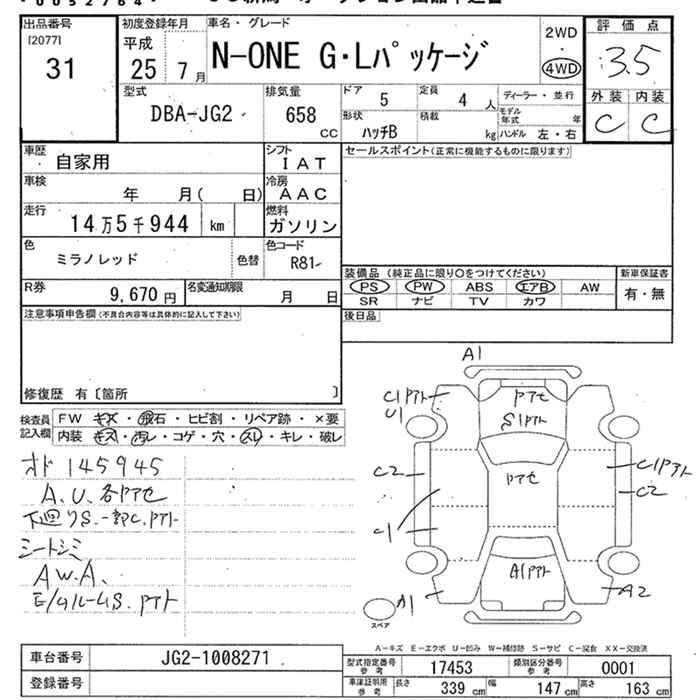 出品番号
[2077]
31
初度登録年月
平成
25 7 月
車名・グレード
N-ONE G・Lパッケージ
2WD
・
4WD
評価点
3.5
外装 内装
C C
型式
DBA-JG2
排気量
658
CC
ドア
5
定員
4 人
ディーラー・並行
モデル年式 年
形状
ハッチB
積載
kg
ハンドル 左・右
車歴
自家用
シフト
IAT
セールスポイント(正常に機能するものに限ります)
車検
年 月( 日)
冷房
AAC
走行
14万5千944 km
燃料
ガソリン
色
ミラノレッド
色替
色コード
R81-
装備品 (純正品に限り○をつけてください)
新車保証書
PS PW ABS エアB AW
SR ナビ TV カワ
有・無
R券
9,670 円
名変通知期限
月 日
後日品
注意事項申告欄(不具合内容等は具体的に記入して下さい)
修復歴 有〔箇所 〕
検査員記入欄
FW キズ・飛石・ヒビ割・リペア跡・×要
内装 キズ・汚レ・コゲ・穴・スレ・キレ・破レ
オド 145945
A.U.各アセ
下廻りS.一部C.アト
シートシミ
AW.A.
A1
C1アト
U1
アセ
S1アト
C2
アセ
C1アト
C2
C1
A1アト
A1
A2
スペア
A-キズ E-エクボ U-凹み W-補修跡 S-サビ C-腐食 XX-交換済
車台番号
JG2-1008271
登録番号
型式指定番号
参考
17453
類別区分番号
参考
0001
車庫証明用
参考
長さ
339 cm
幅
147 cm
高さ
163 cm